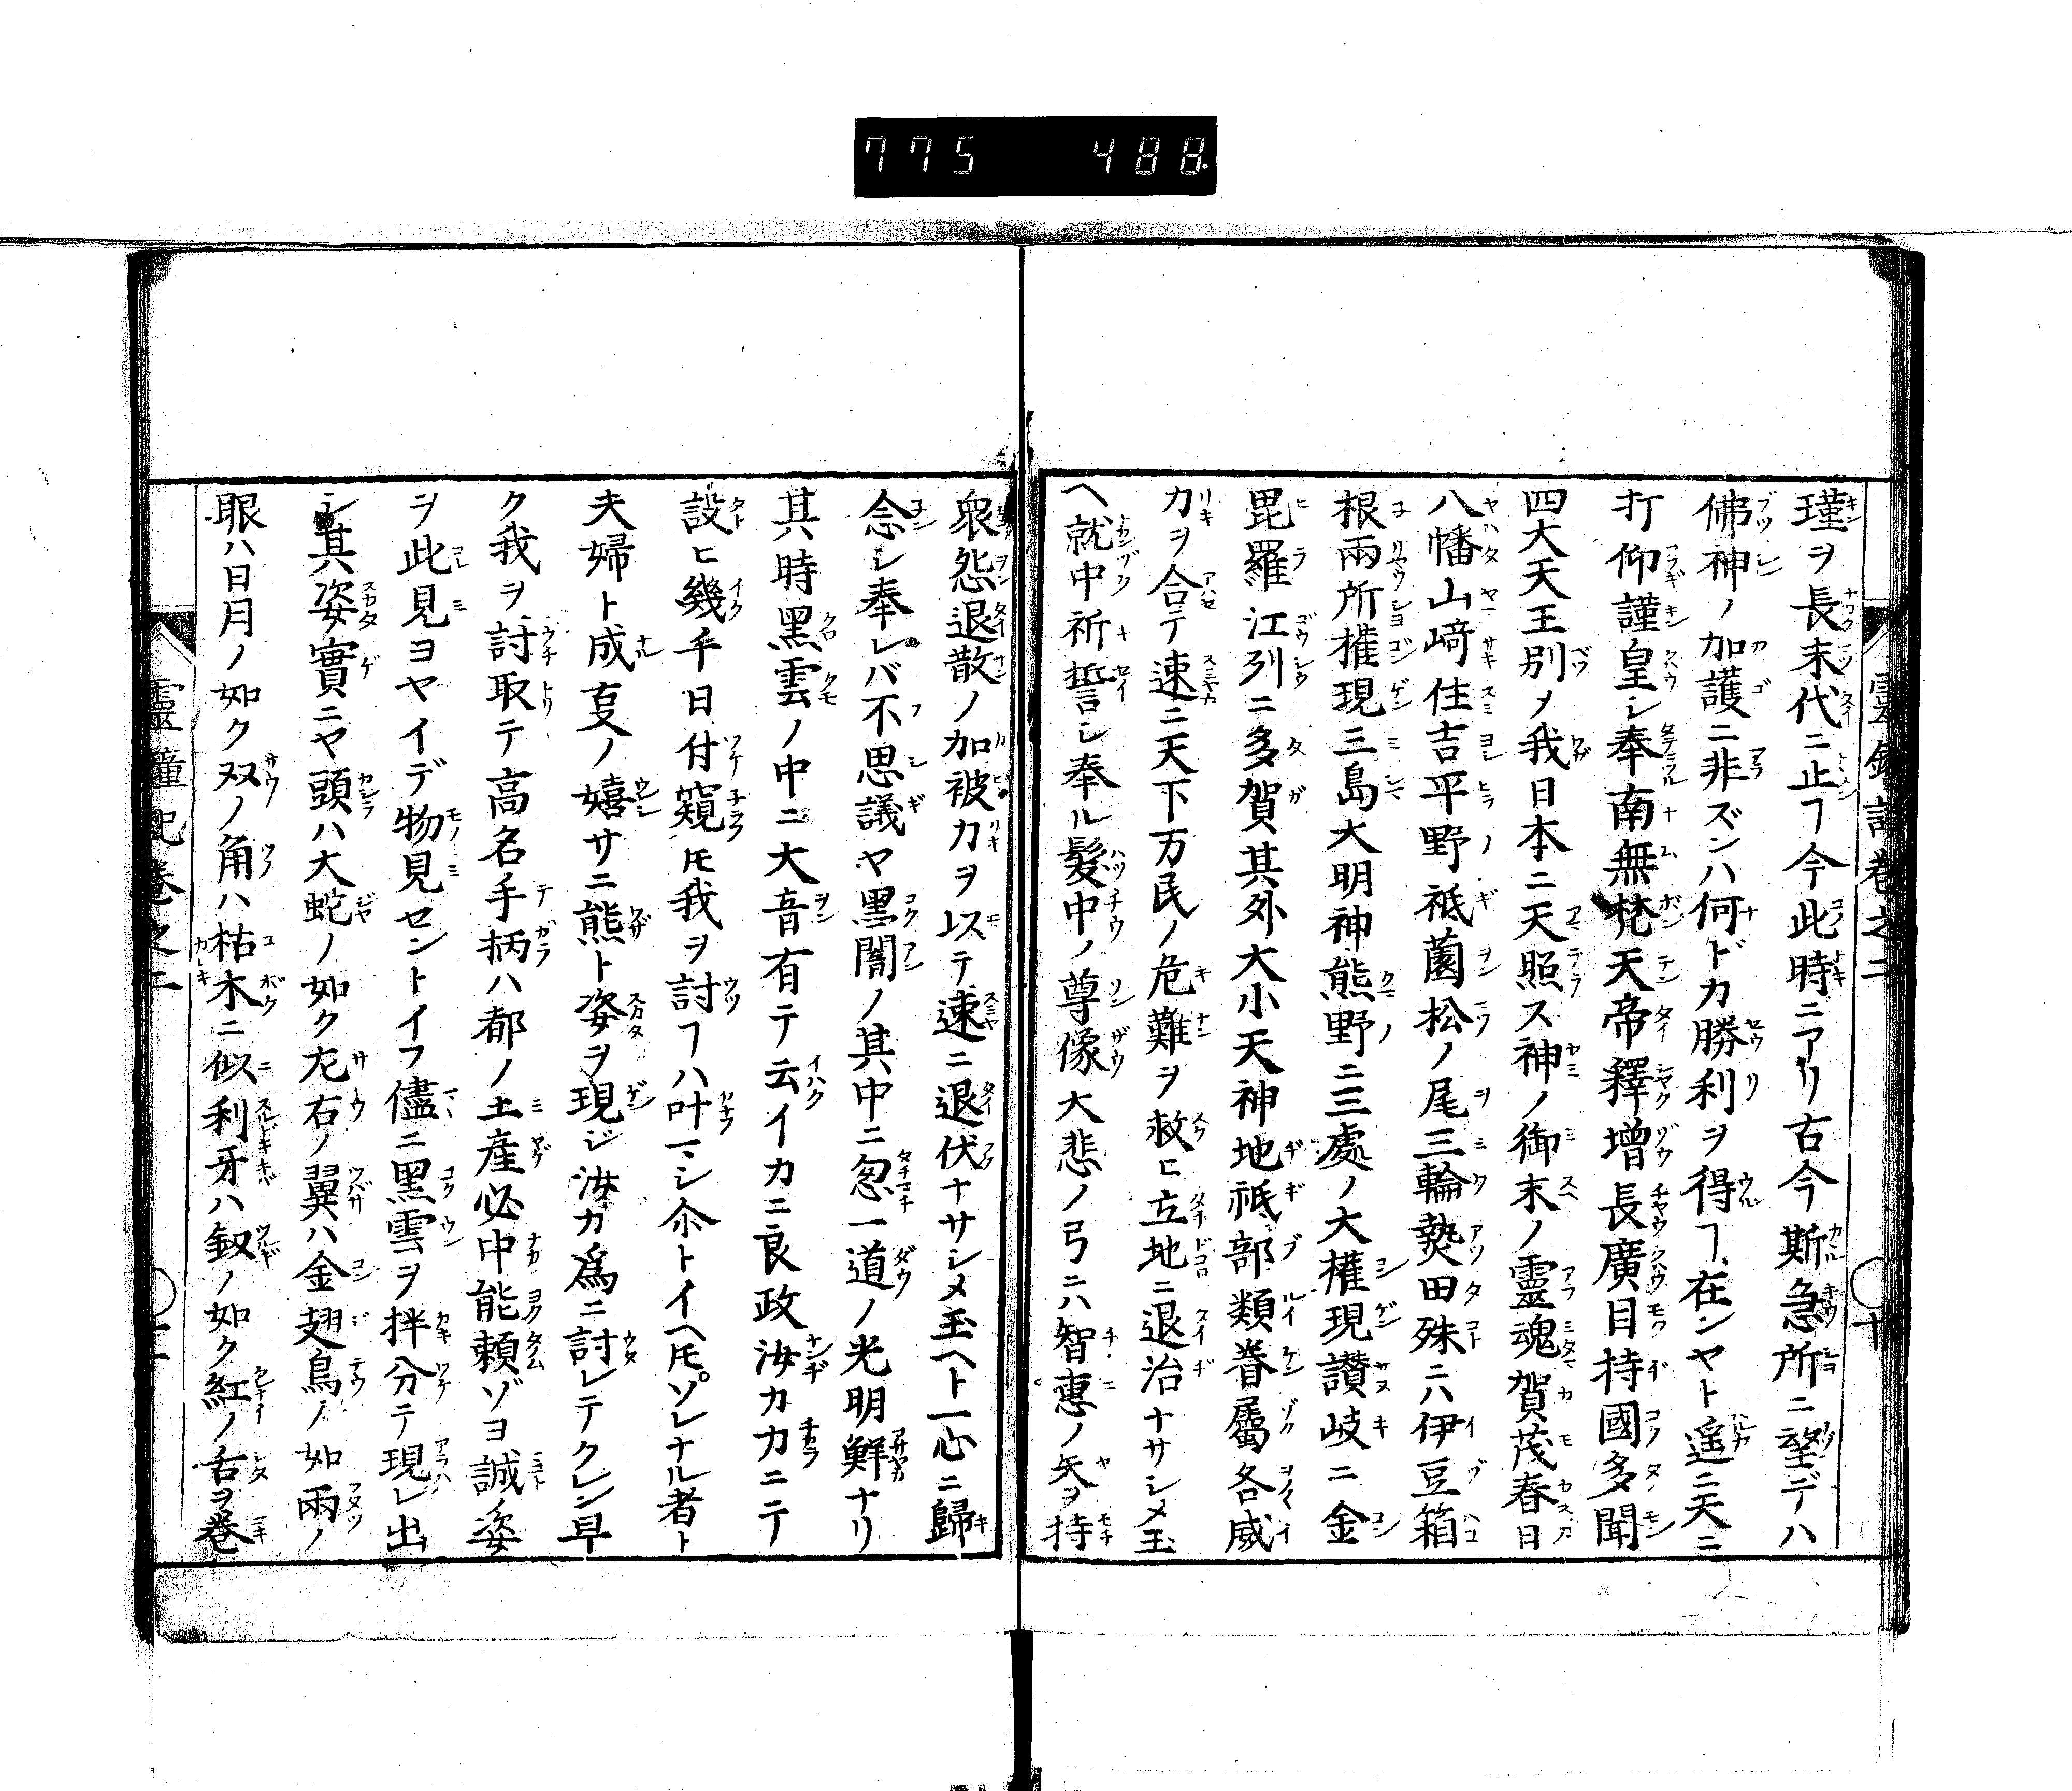 775 488
瑾ヲ長末代ニ止ヿ今此時ニアリ古今斯急所ニ望デハ
佛神ノ加護ニ非ズンハ何ドカ勝利ヲ得ヿ在ンヤト遥ニ天ニ
打仰謹皇シ奉南無梵天帝釋增長廣目持國多聞
四大天王別メ我日本ニ天照ス神ノ御末ノ靈魂賀茂春日
八幡山﨑住吉平野祇薗松ノ尾三輪熱田殊ニハ伊豆箱
根兩所權現三島大明神熊野ニ三處ノ大權現讃岐ニ金
毘羅江列ニ多賀其外大小天神地祇部類眷屬各威
力ヲ合テ速ニ天下万民ノ危難ヲ救ヒ立地ニ退治ナサシメ玉
ヘ就中祈誓シ奉ル髮中ノ尊像大悲ノ弓ニハ智惠ノ矢ヲ持
衆怨退散ノ加被力ヲ以テ速ニ退伏ナサシメ玉ヘト一心ニ歸
念シ奉レバ不思議ヤ黑闇ノ其中ニ忽一道ノ光明鮮ナリ
其時黑雲ノ中ニ大音有テ云イカニ良政汝カ力ニテ
設ヒ幾千日付窺ㇳモ我ヲ討ヿハ叶マシ尒トイヘㇳモソレナル者ト
夫婦ト成叓ノ嬉サニ熊ト姿ヲ現ジ汝カ爲ニ討レテクレン早
ク我ヲ討取テ高名手柄ハ都ノ土産必中能頼ゾヨ誠ノ姿
ヲ此見ヨヤイデ物見セントイフ儘ニ黑雲ヲ拌分テ現レ出
シ其姿實ニヤ頭ハ大蛇ノ如ク左右ノ翼ハ金翅鳥ノ如兩ノ
眼ハ日月ノ如ク双ノ角ハ枯木ニ似利牙ハ釼ノ如ク紅ノ舌ヲ巻